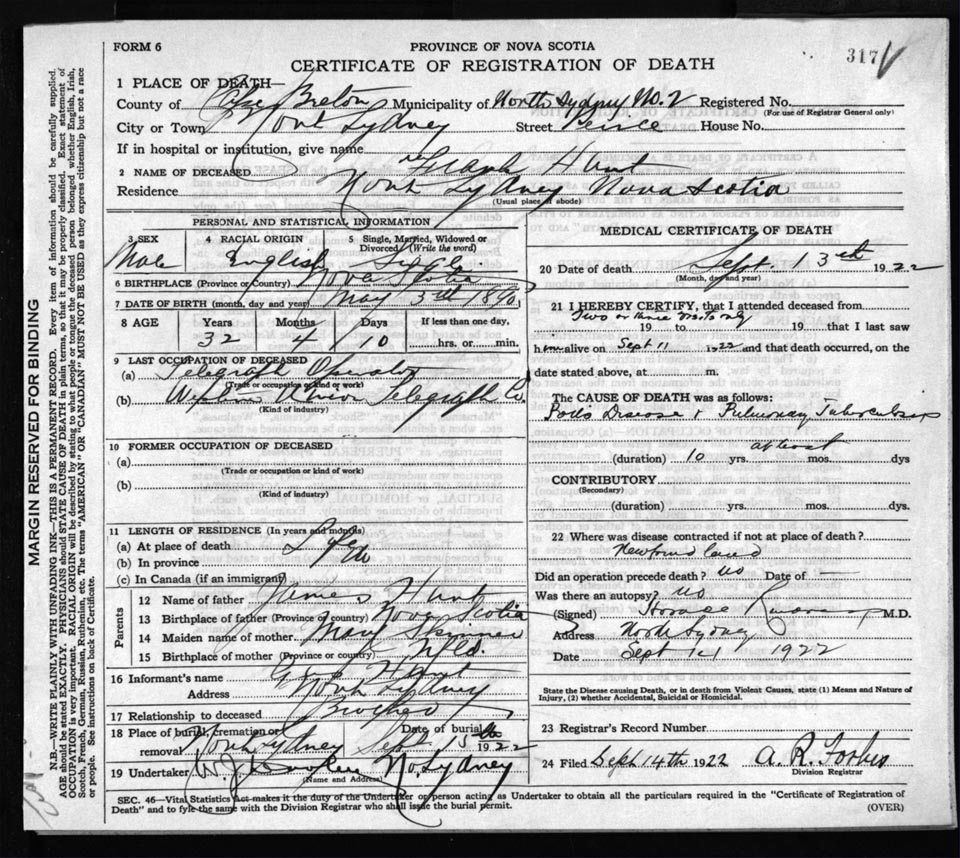 FORM 6
PROVINCE OF NOVA SCOTIA
317
CERTIFICATE OF REGISTRATION OF DEATH
1 PLACE OF DEATH—
County of Cape Breton Municipality of North Sydney No. 2 Registered No.
(For use of Registrar General only)
City or Town North Sydney Street Peirce House No.
If in hospital or institution, give name
2 NAME OF DECEASED Hunt
Residence North Sydney Nova Scotia
(Usual place of abode)
PERSONAL AND STATISTICAL INFORMATION
3 SEX 4 RACIAL ORIGIN 5 Single, Married, Widowed or Divorced (Write the word)
Male English Single
6 BIRTHPLACE (Province or Country) Nova Scotia
7 DATE OF BIRTH (month, day and year) May 3rd 1890
8 AGE Years Months Days If less than one day.
32 4 10 hrs. or min.
9 LAST OCCUPATION OF DECEASED
(a) Telegraph Operator
(Trade or occupation or kind of work)
(b) Western Union Telegraph Co.
(Kind of industry)
10 FORMER OCCUPATION OF DECEASED
(a)
(Trade or occupation or kind of work)
(b)
(Kind of industry)
11 LENGTH OF RESIDENCE (In years and months)
(a) At place of death
(b) In province
(c) In Canada (if an immigrant)
Parents
12 Name of father James Hunt
13 Birthplace of father (Province or country) Nova Scotia
14 Maiden name of mother Mary Skinner
15 Birthplace of mother (Province or country) Nfld.
16 Informant's name Hunt
Address North Sydney
17 Relationship to deceased Brother
18 Place of burial, cremation or removal North Sydney Date of burial Sept 15th 1922
19 Undertaker W. J. No. Sydney
(Name and Address)
MEDICAL CERTIFICATE OF DEATH
20 Date of death Sept. 13th 1922
(Month, day and year)
21 I HEREBY CERTIFY, that I attended deceased from
Two or three visits only
19 to 19 that I last saw
him alive on Sept 11 1922 and that death occurred, on the
date stated above, at m.
The CAUSE OF DEATH was as follows:
Potts Disease & Pulmonary Tuberculosis
(duration) 10 yrs. mos. dys
CONTRIBUTORY
(Secondary)
(duration) yrs. mos. dys.
22 Where was disease contracted if not at place of death?
Newfoundland
Did an operation precede death? no Date of —
Was there an autopsy? no
(Signed) M.D.
Address North Sydney
Date Sept 14 1922
State the Disease causing Death, or in death from Violent Causes, state (1) Means and Nature of Injury, (2) whether Accidental, Suicidal or Homicidal.
23 Registrar's Record Number
24 Filed Sept 14th 1922 A. R. Forbes
Division Registrar
SEC. 46—Vital Statistics Act makes it the duty of the Undertaker or person acting as Undertaker to obtain all the particulars required in the "Certificate of Registration of
Death" and to fyle the same with the Division Registrar who shall issue the burial permit.
(OVER)
MARGIN RESERVED FOR BINDING
N.B.—WRITE PLAINLY WITH UNFADING INK—THIS IS A PERMANENT RECORD. Every item of information should be carefully supplied.
AGE should be stated EXACTLY. PHYSICIANS should STATE CAUSE OF DEATH in plain terms, so that it may be properly classified. Exact statement of
OCCUPATION is very important. RACIAL ORIGIN will be described by stating to what people or tongue the deceased person belonged whether English, Irish,
Scotch, French, German, Russian, Ruthenian, etc. The terms "AMERICAN" OR "CANADIAN" MUST NOT BE USED as they express citizenship but not a race
or people. See instructions on back of Certificate.